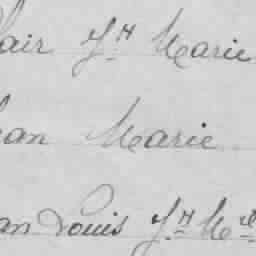 air Jh Marie
ean Marie
an Louis Jh Mel